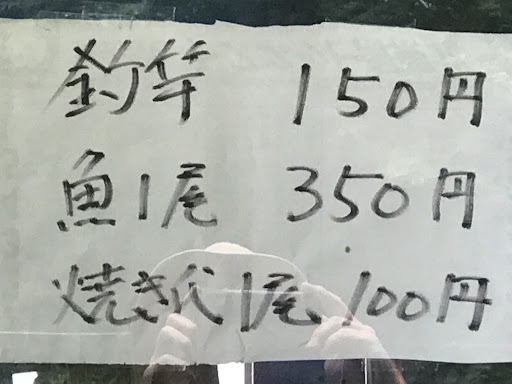 釣竿 150円
魚1尾 350円
焼き代1尾 100円